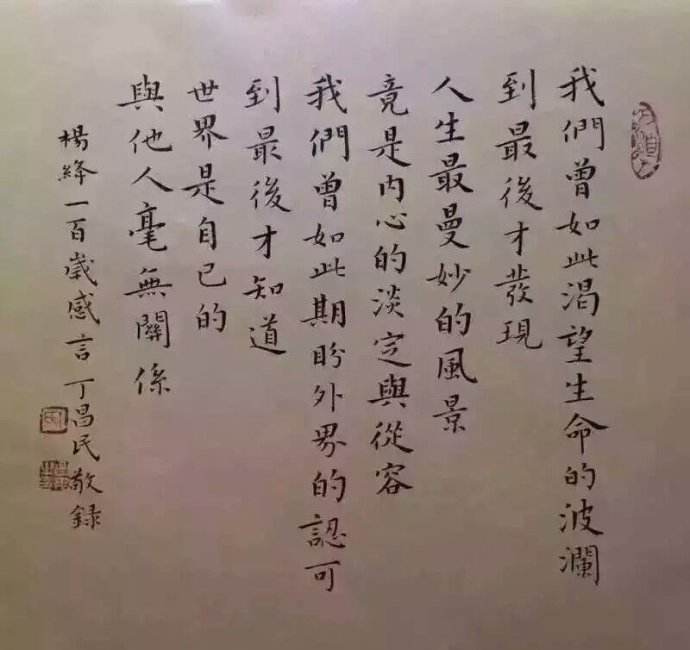 我們曾如此渴望生命的波瀾
到最後才發現
人生最曼妙的風景
竟是内心的淡定與從容
我們曾如此期盼外界的認可
到最後才知道
世界是自己的
與他人毫無關係
楊絳一百歲感言 丁昌民敬録